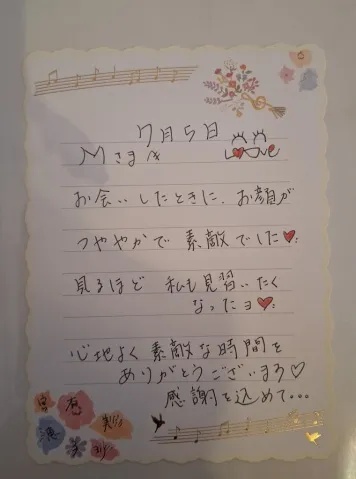 7月5日
Mさま
LOVE
お会いしたときに、お顔が
つややかで 素敵でした♥
見るほど 私も見習いたく
なったヨ♥
心地よく 素敵な時間を
ありがとうございます♡
感謝を込めて...